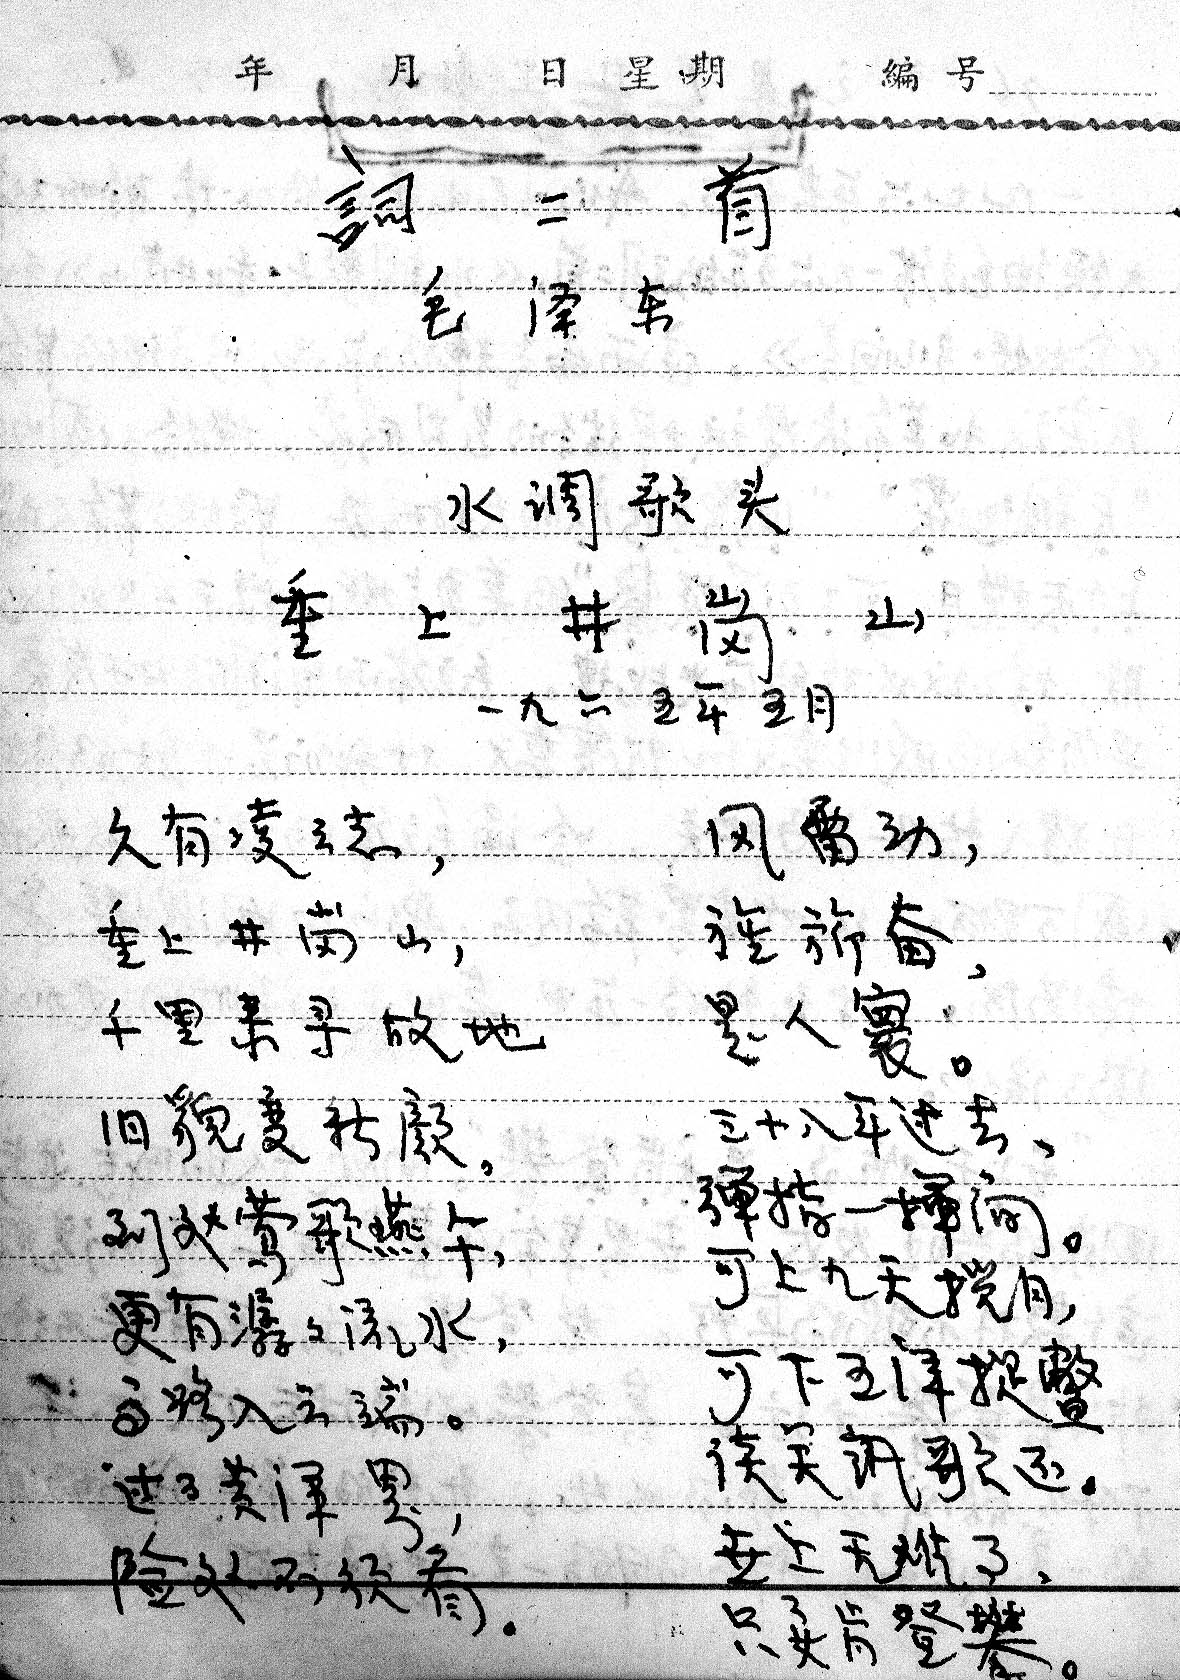 年 月 日 星期 編号
詞二首
毛泽东
水调歌头
重上井岗山
一九六五年五月
久有凌云志，
重上井岗山，
千里来寻故地
旧貌变新颜。
到处莺歌燕午，
更有潺々流水，
高路入云端。
过了黄洋界，
险处不须看。
风雷动，
旌旂奋，
是人寰。
三十八年过去、
弹指一挥间。
可上九天揽月，
可下五洋捉鳖
谈笑凯歌还。
世上无难事、
只要肯登攀。